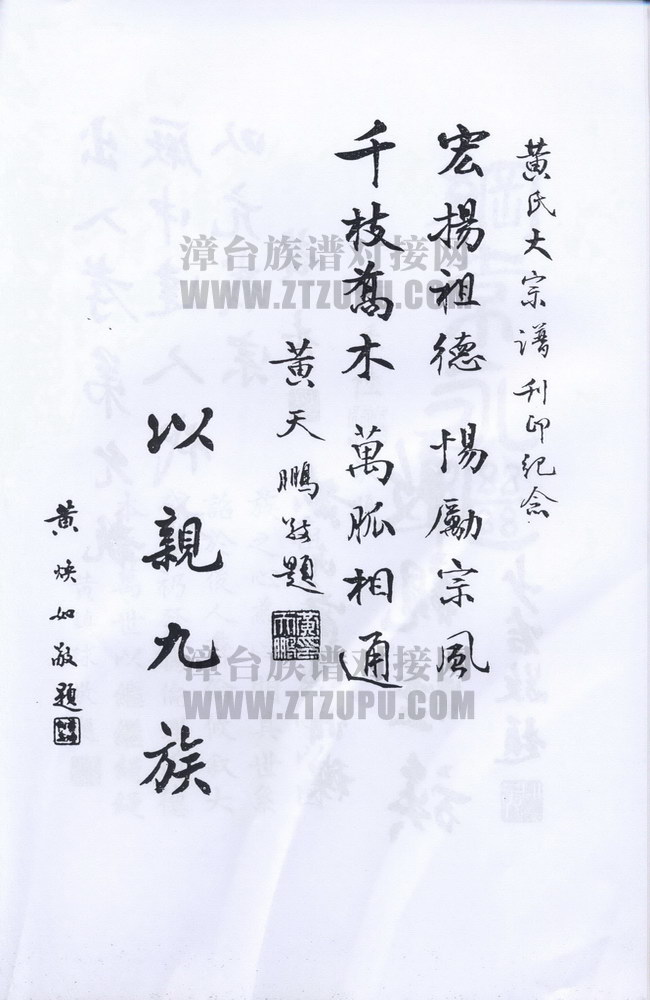 黃氏大宗譜刊印紀念
宏揚祖德 惕勵宗風
千枝喬木 萬脈相通
黃天鵬敬題
以親九族
黃煥如敬題
漳台族谱对接网
WWW.ZTZUPU.COM
漳台族谱对接网
WWW.ZTZUPU.COM